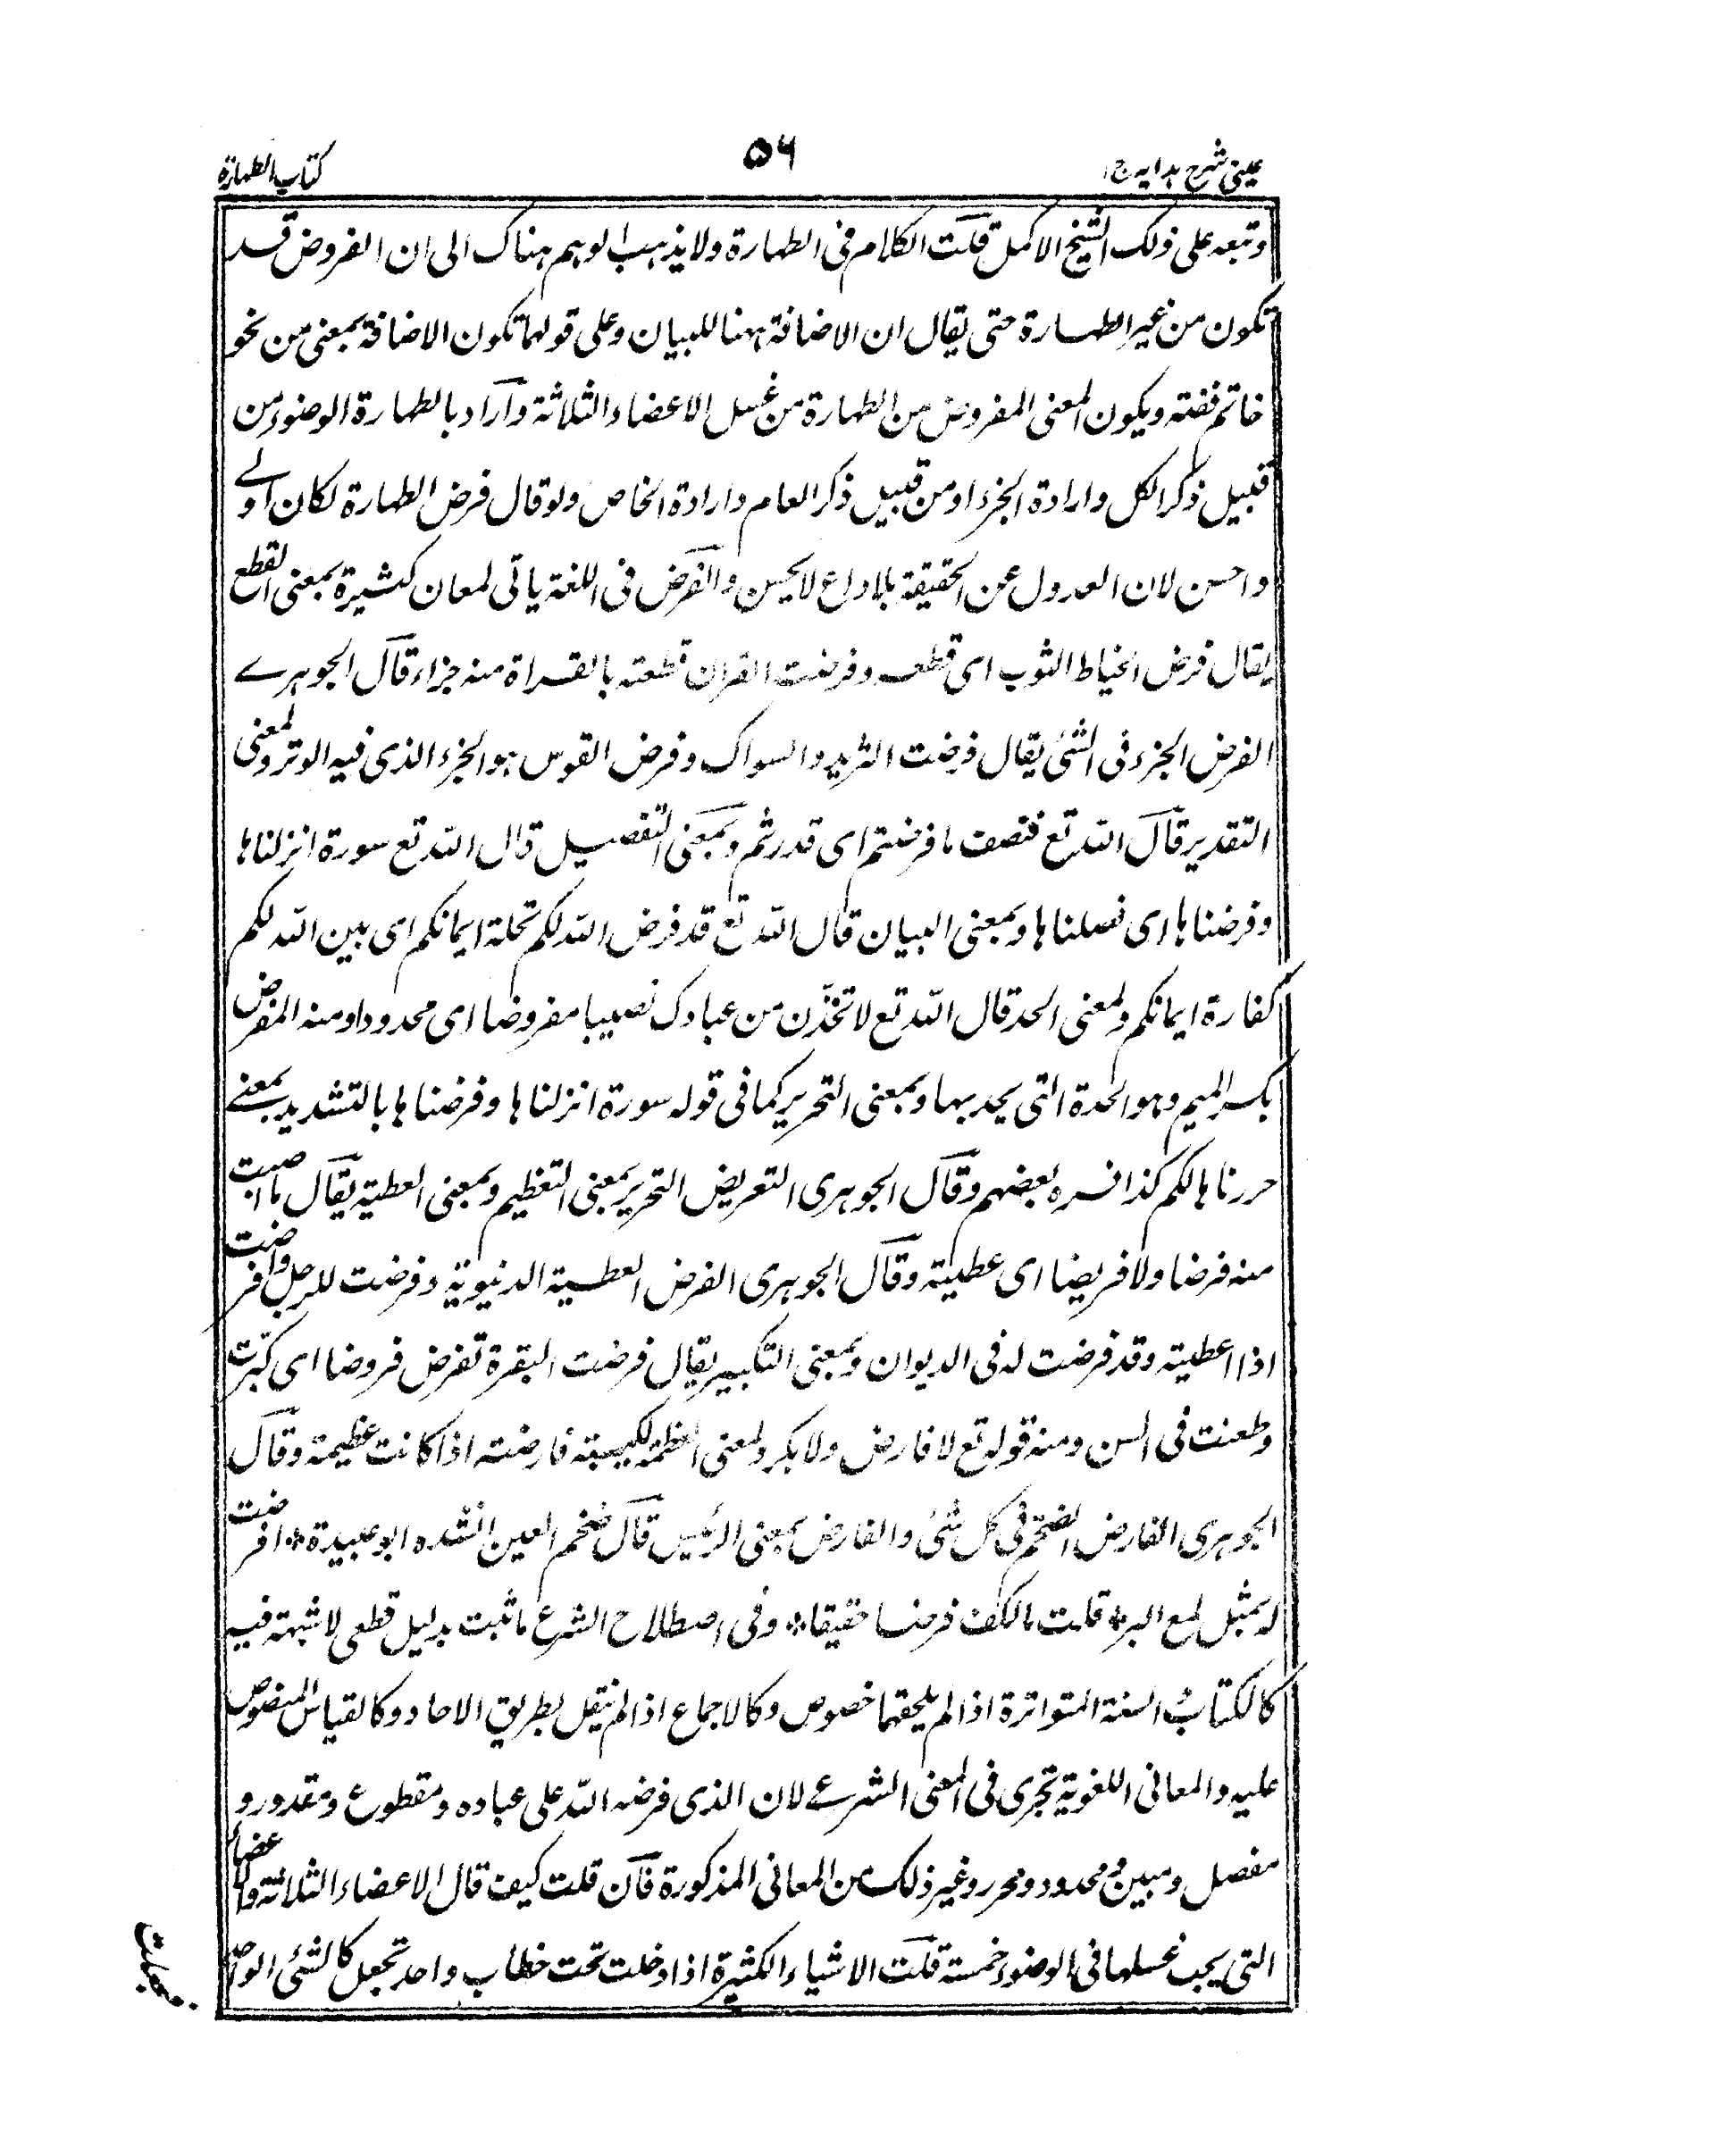 عینی شرح ہدایہ ج ۱
۵۶
کتاب الطہارة
وتبعہ علی ذلک الشیخ الاکمل قلت الکلام فی الطہارة ولا یذہب الوہم ہناک الی ان الفروض قد
تکون من غیر الطہارة حتی یقال ان الاضافة ہہنا للبیان وعلی قولہما تکون الاضافة بمعنی من نحو
خاتم فضتہ ویکون المعنی المفروض من الطہارة من غسل الاعضاء الثلاثة وآراد بالطہارة الوضوء من
قبیل ذکر الکل وارادة الجزء او من قبیل ذکر العام وارادة الخاص ولو قال فرض الطہارة لکان اولے
واحسن لان العدول عن الحقیقة بلا داع لا یحسن والفرض فی اللغة یاتی لمعان کثیرة بمعنی القطع
یقال فرض الخیاط الثوب ای قطعہ وفرضت القران قطعتہ بالقراة منہ جزاء قال الجوہرے
الفرض الجزء فی الشئ یقال فرضت الثرید والسواک وفرض القوس ہو الجزء الذی فیہ الوتر وبمعنی
التقدیر قال اللہ تع فنصف ما فرضتم ای قدرتم وبمعنی التفصیل قال اللہ تع سورة انزلناہا
وفرضناہا ای فصلناہا وبمعنی البیان قال اللہ تع قد فرض اللہ لکم تحلة ایمانکم ای بین اللہ لکم
کفارة ایمانکم وبمعنی الحد قال اللہ تع لاتخذن من عبادک نصیبا مفروضا ای محدودا ومنہ المفرض
بکسر المیم وہو الحدة التی یحد بہا وبمعنی التحریر کما فی قولہ سورة انزلناہا وفرضناہا بالتشدید بمعنے
حررناہا لکم کذا فسرہ بعضہم وقال الجوہری التعریض التحریر بمعنی التعظیم وبمعنی العطیة یقال ما اصبت
منہ فرضا ولا فریضا ای عطیتہ وقال الجوہری الفرض العطیة الدنیویة وفرضت للرجل وافرضت
اذا اعطیتہ وقد فرضت لہ فی الدیوان وبمعنی التکبیر یقال فرضت البقرة تفرض فروضا ای کبرت
وطعنت فی السن ومنہ قولہ تع لا فارض ولا بکر وبمعنی العظمة لحیتہ فارضتہ اذا کانت عظیمة وقال
الجوہری الفارض الضخم فی کل شئ والفارض بمعنی الرئیس قال ضخم العین انشدہ ابو عبیدة * افرضت
لہ بمثل لمع البر* قلت بالکف فرضا حقیقا* وفی اصطلاح الشرع ما ثبت بدلیل قطعی لا شبہة فیہ
کالکتاب والسنة المتواترة اذا لم یلحقہما خصوص وکالاجماع اذا لم ینقل بطریق الاحاد وکالقیاس المنصوص
علیہ والمعانی اللغویة تجری فی المعنی الشرعے لان الذی فرضہ اللہ علی عبادہ ومقطوع ومقدور و
مفصل ومبین ومحدود ومحرر وغیر ذلک من المعانی المذکورة فان قلت کیف قال الاعضاء الثلاثة والاعضاء
التی یجب غسلہا فی الوضوء خمستہ قلت الاشیاء الکثیرة اذا دخلت تحت خطاب واحد تجعل کالشئی الواحد